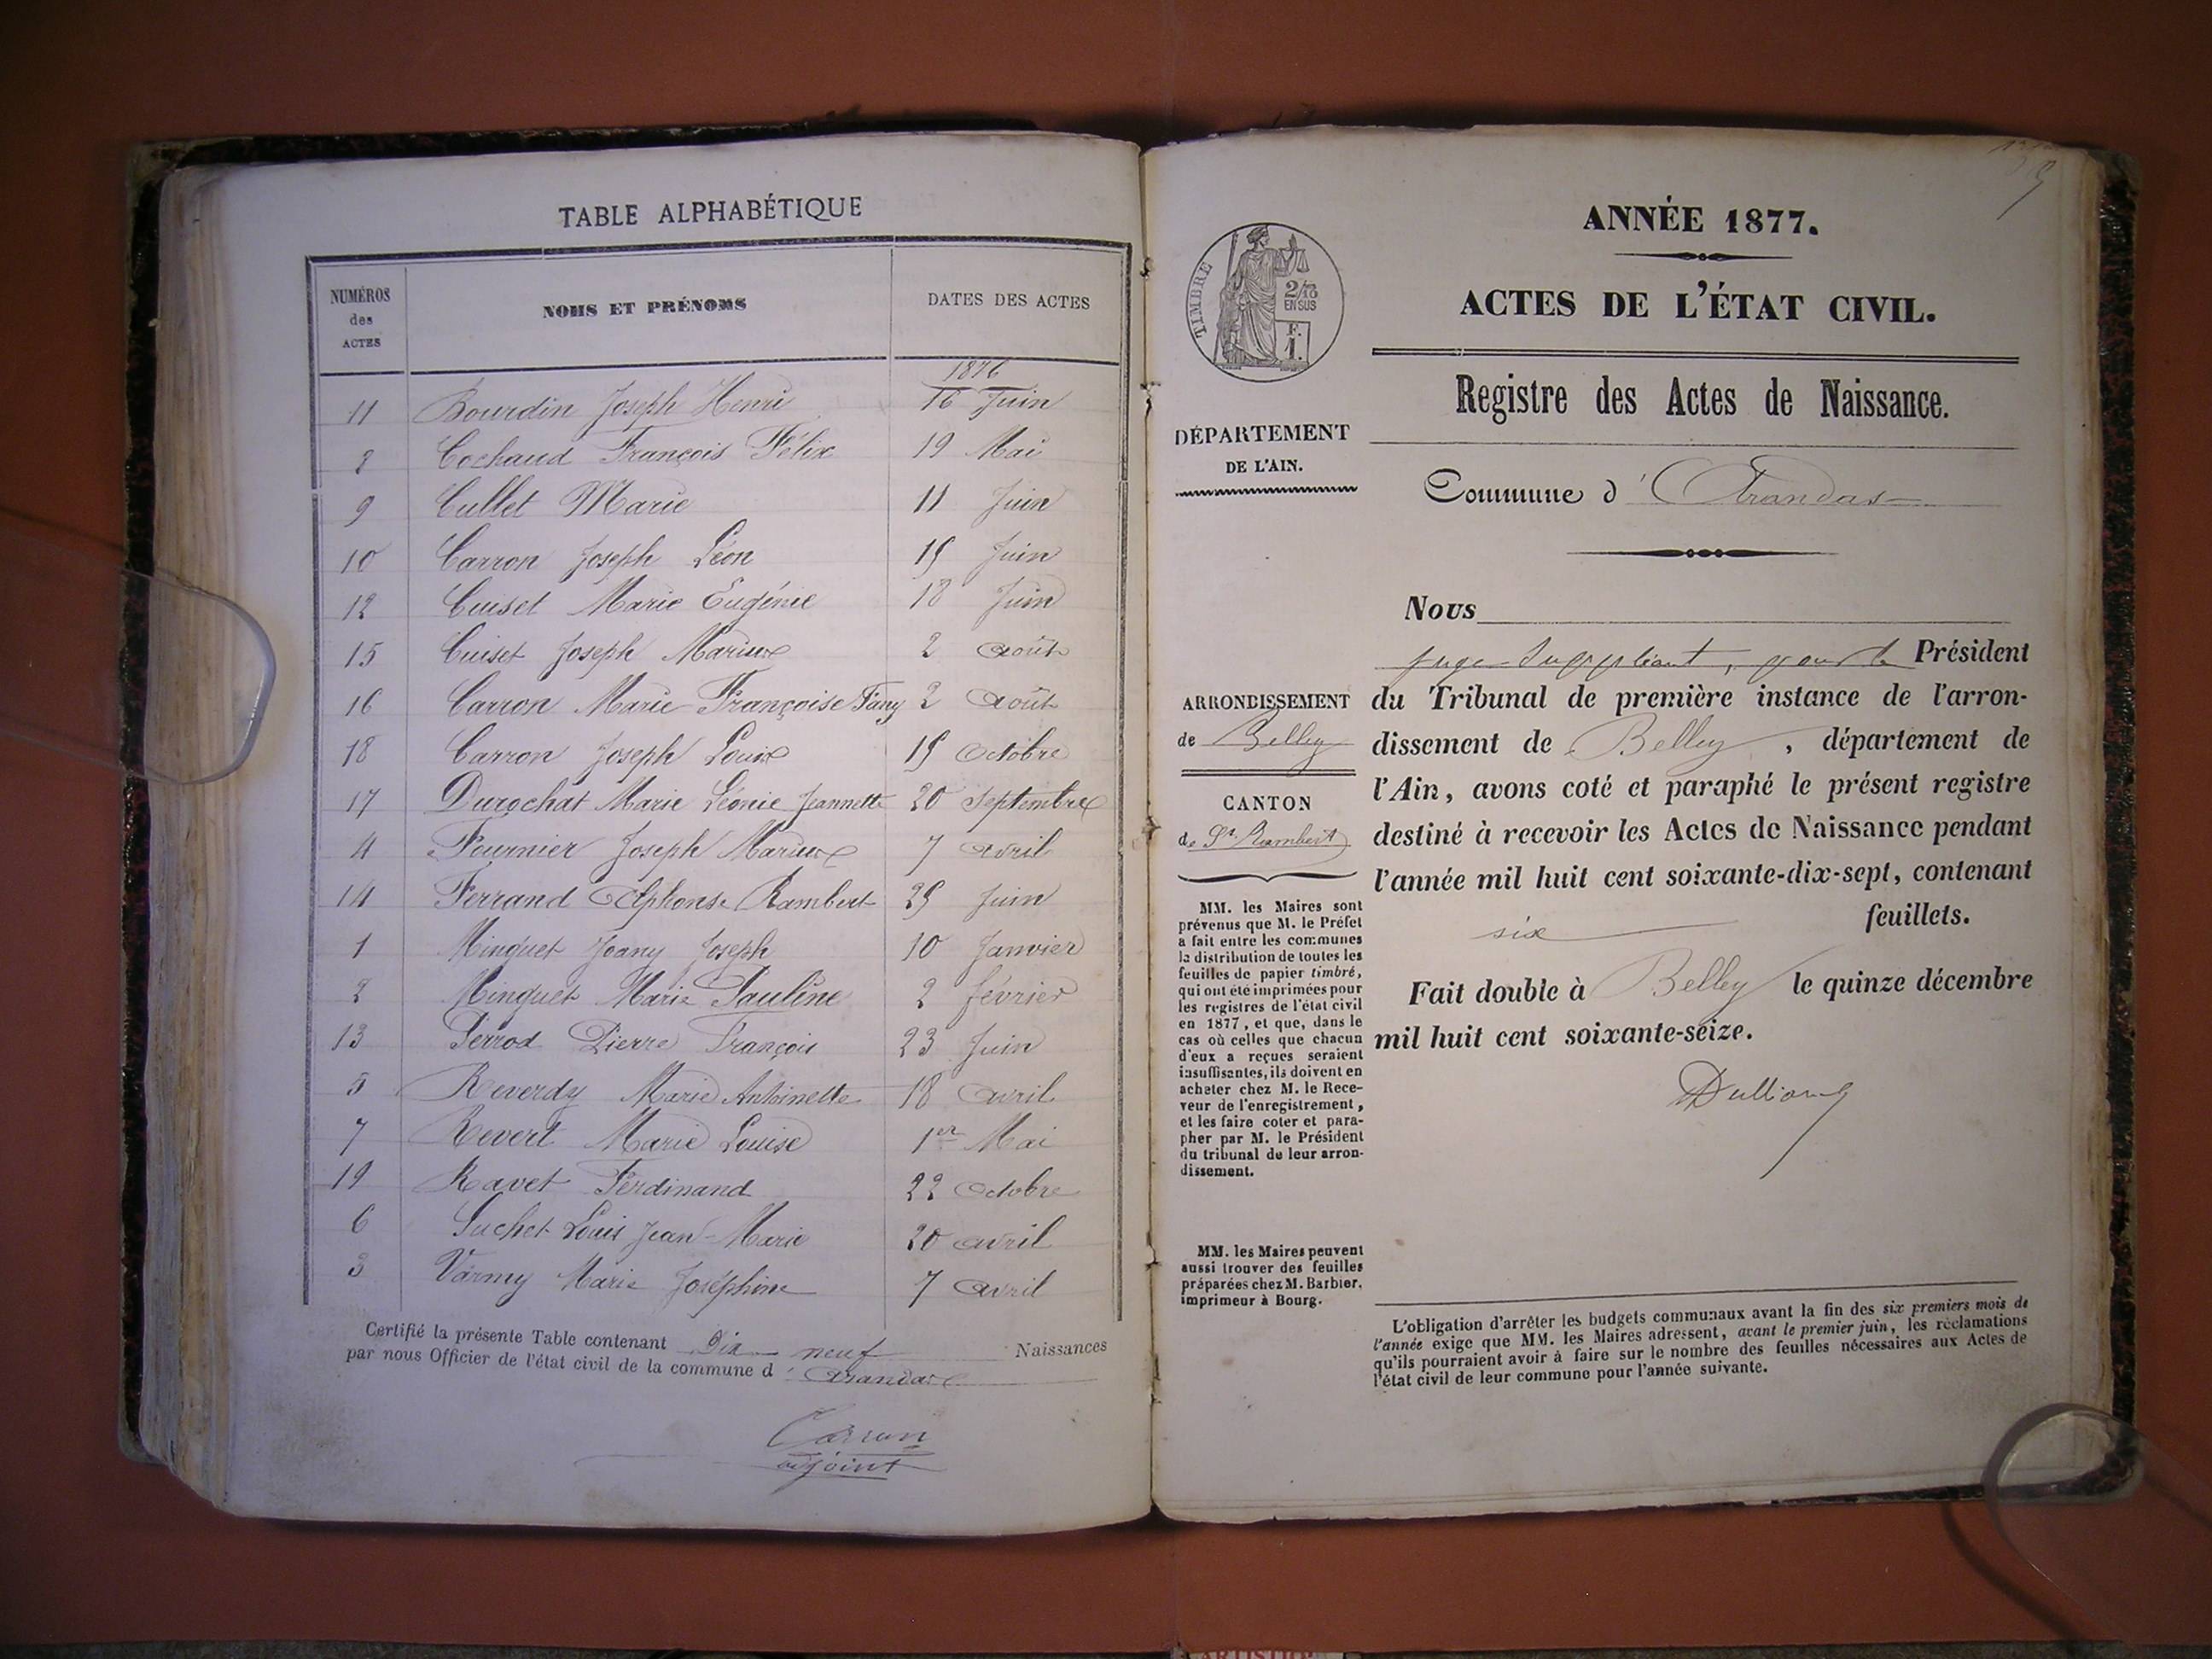 TABLE ALPHABÉTIQUE
NUMÉROS des ACTES
NOMS ET PRÉNOMS
DATES DES ACTES
1876
11 Bourdin Joseph Henri 16 Juin
8 Cochaud François Félix 19 Mai
9 Cullet Marie 11 Juin
10 Carron Joseph Léon 15 Juin
12 Cuiset Marie Eugénie 18 Juin
15 Cuiset Joseph Marius 2 août
16 Carron Marie Françoise Fany 2 août
18 Carron Joseph Louis 15 octobre
17 Durochat Marie Léonie Jeannette 20 septembre
4 Fournier Joseph Marius 7 avril
14 Ferrand Alphonse Rambert 25 Juin
1 Minguet Joany Joseph 10 Janvier
2 Minguet Marie Pauline 2 février
13 Perrod Pierre François 23 Juin
5 Reverdy Marie Antoinette 18 avril
7 Revert Marie Louise 1er Mai
19 Ravet Ferdinand 22 octobre
6 Suchet Louis Jean-Marie 20 avril
3 Varney Marie Joséphine 7 avril
Certifié la présente Table contenant Dix neuf Naissances
par nous Officier de l'état civil de la commune d' arandas
Carron
adjoint
ANNÉE 1877.
ACTES DE L'ÉTAT CIVIL.
TIMBRE
2/10
EN SUS
F.
1.
Registre des Actes de Naissance.
DÉPARTEMENT
DE L'AIN.
Commune d' Arandas
ARRONDISSEMENT
de Belley
CANTON
de St Rambert
MM. les Maires sont
prévenus que M. le Préfet
a fait entre les communes
la distribution de toutes les
feuilles de papier timbré,
qui ont été imprimées pour
les registres de l'état civil
en 1877, et que, dans le
cas où celles que chacun
d'eux a reçues seraient
insuffisantes, ils doivent en
acheter chez M. le Rece-
veur de l'enregistrement,
et les faire coter et para-
pher par M. le Président
du tribunal de leur arron-
dissement.
MM. les Maires peuvent
aussi trouver des feuilles
préparées chez M. Barbier,
imprimeur à Bourg.
Nous
juge-suppléant, pour le Président
du Tribunal de première instance de l'arron-
dissement de Belley, département de
l'Ain, avons coté et paraphé le présent registre
destiné à recevoir les Actes de Naissance pendant
l'année mil huit cent soixante-dix-sept, contenant
six feuillets.
Fait double à Belley le quinze décembre
mil huit cent soixante-seize.
L'obligation d'arrêter les budgets communaux avant la fin des six premiers mois de
l'année exige que MM. les Maires adressent, avant le premier juin, les réclamations
qu'ils pourraient avoir à faire sur le nombre des feuilles nécessaires aux Actes de
l'état civil de leur commune pour l'année suivante.